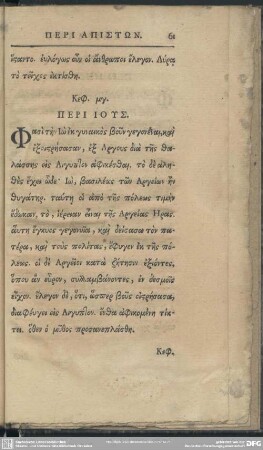 ΠΕΡΙ ΑΠΙΣΤΩΝ. 61
ὕσαντο. εὐλόγως οὖν οἱ ἄνθρωποι ἔλεγον. Λύρᾳ
τὸ τεῖχος ἐκτίσθη.
Κεφ. μγ.
ΠΕΡΙ ΙΟΥΣ.
Φασὶ τὴν Ἰὼ ἐκ γυναικὸς βοῦν γεγονέναι, καὶ
ἐξοιστρήσασαν, ἐξ Ἄργους διὰ τῆς θα-
λάσσης εἰς Αἴγυπτον ἀφικέσθαι. τὸ δὲ ἀλη-
θὲς ἔχει ὧδε· Ἰὼ, βασιλέως τῶν Ἀργείων ἦν
θυγάτηρ. ταύτῃ οἱ ἀπὸ τῆς πόλεως τιμὴν
ἔδωκαν, τὸ, ἱέρειαν εἶναι τῆς Ἀργείας Ἥρας.
αὕτη ἔγκυος γεγονυῖα, καὶ δείσασα τὸν πα-
τέρα, καὶ τοὺς πολίτας, ἔφυγεν ἐκ τῆς πό-
λεως. οἱ δὲ Ἀργεῖοι κατὰ ζήτησιν ἐξιόντες,
ὅπου ἂν εὗρον, συλλαμβάνοντες, ἐν δεσμοῖς
εἶχον. ἔλεγον δὲ, ὅτι, ὥσπερ βοῦς οἰστρήσασα,
διαφεύγει εἰς Αἴγυπτον. ἔνθα ἀφικομένη τίκ-
τει. ὅθεν ὁ μῦθος προσανεπλάσθη.
Κεφ.
DFG